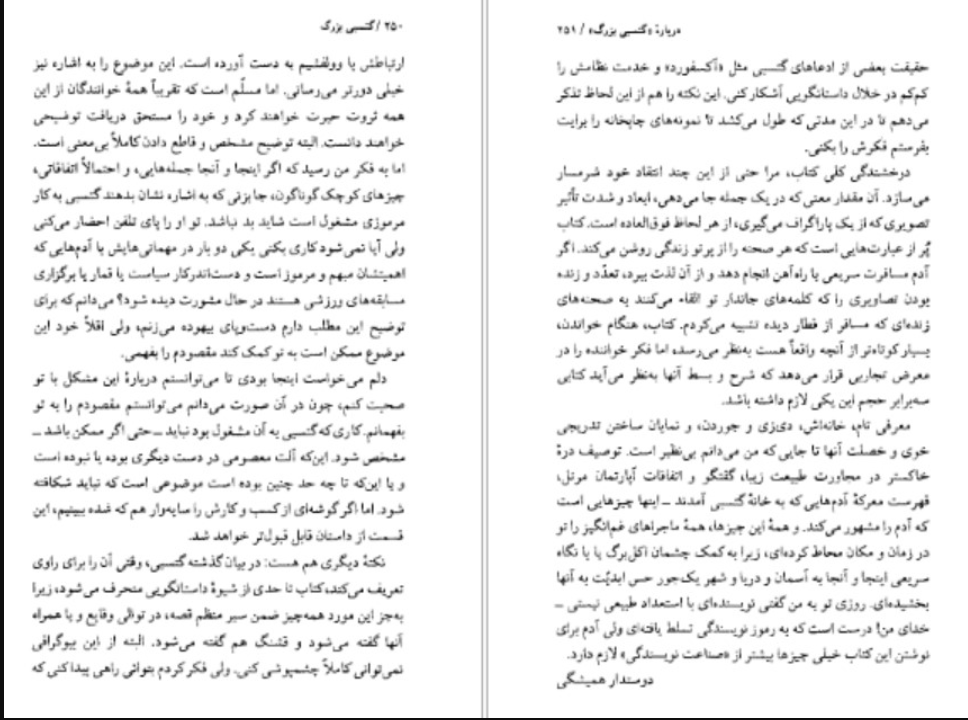 ۲۵۰ / گتسبی بزرگ
ارتباطش با وولفشیم به دست آورده است. این موضوع را به اشاره نیز
خیلی دورتر می‌رسانی. اما مسلّم است که تقریباً همهٔ خوانندگان از این
همه ثروت حیرت خواهند کرد و خود را مستحق دریافت توضیحی
خواهند دانست. البته توضیح مشخص و قاطع دادن کاملاً بی‌معنی است.
اما به فکر من رسید که اگر اینجا و آنجا جمله‌هایی، و احتمالاً اتفاقاتی،
چیزهای کوچک گوناگون، جا بزنی که به اشاره نشان بدهند گتسبی به کار
مرموزی مشغول است شاید بد نباشد. تو او را پای تلفن احضار می‌کنی
ولی آیا نمی‌شود کاری بکنی یکی دو بار در مهمانی‌هایش با آدم‌هایی که
اهمیتشان مبهم و مرموز است و دست‌اندرکار سیاست یا قمار یا برگزاری
مسابقه‌های ورزشی هستند در حال مشورت دیده شود؟ می‌دانم که برای
توضیح این مطلب دارم دست‌وپای بیهوده می‌زنم، ولی اقلاً خود این
موضوع ممکن است به تو کمک کند مقصودم را بفهمی.
دلم می‌خواست اینجا بودی تا می‌توانستم دربارهٔ این مشکل با تو
صحبت کنم، چون در آن صورت می‌دانم می‌توانستم مقصودم را به تو
بفهمانم. کاری که گتسبی به آن مشغول بود نباید ــ حتی اگر ممکن باشد ــ
مشخص شود. این‌که آلت معصومی در دست دیگری بوده یا نبوده است
و یا این‌که تا چه حد چنین بوده است موضوعی است که نباید شکافته
شود. اما اگر گوشه‌ای از کسب و کارش را سایه‌وار هم که شده ببینیم، این
قسمت از داستان قابل قبول‌تر خواهد شد.
نکتهٔ دیگری هم هست: در بیان گذشته گتسبی، وقتی آن را برای راوی
تعریف می‌کند، کتاب تا حدی از شیوهٔ داستانگویی منحرف می‌شود، زیرا
به‌جز این مورد همه‌چیز ضمن سیر منظم قصه، در توالی وقایع و یا همراه
آنها گفته می‌شود و قشنگ هم گفته می‌شود. البته از این بیوگرافی
نمی‌توانی کاملاً چشمپوشی کنی. ولی فکر کردم بتوانی راهی پیدا کنی که
دربارهٔ «گتسبی بزرگ» / ۲۵۱
حقیقت بعضی از ادعاهای گتسبی مثل «آکسفورد» و خدمت نظامش را
کم‌کم در خلال داستانگویی آشکار کنی. این نکته را هم از این لحاظ تذکر
می‌دهم تا در این مدتی که طول می‌کشد تا نمونه‌های چاپخانه را برایت
بفرستم فکرش را بکنی.
درخشندگی کلی کتاب، مرا حتی از این چند انتقاد خود شرمسار
می‌سازد. آن مقدار معنی که در یک جمله جا می‌دهی، ابعاد و شدت تأثیر
تصویری که از یک پاراگراف می‌گیری، از هر لحاظ فوق‌العاده است. کتاب
پُر از عبارت‌هایی است که هر صحنه را از پرتو زندگی روشن می‌کند. اگر
آدم مسافرت سریعی با راه‌آهن انجام دهد و از آن لذت ببرد، تعدّد و زنده
بودن تصاویری را که کلمه‌های جاندار تو القاء می‌کنند به صحنه‌های
زنده‌ای که مسافر از قطار دیده تشبیه می‌کردم. کتاب، هنگام خواندن،
بسیار کوتاه‌تر از آنچه واقعاً هست به‌نظر می‌رسد، اما فکر خواننده را در
معرض تجاربی قرار می‌دهد که شرح و بسط آنها به‌نظر می‌آید کتابی
سه‌برابر حجم این یکی لازم داشته باشد.
معرفی تام، خانه‌اش، دی‌زی و جوردن، و نمایان ساختن تدریجی
خوی و خصلت آنها تا جایی که من می‌دانم بی‌نظیر است. توصیف درهٔ
خاکستر در مجاورت طبیعت زیبا، گفتگو و اتفاقات آپارتمان مرتل،
فهرست معرکهٔ آدم‌هایی که به خانهٔ گتسبی آمدند ــ اینها چیزهایی است
که آدم را مشهور می‌کند. و همهٔ این چیزها، همهٔ ماجراهای غم‌انگیز را تو
در زمان و مکان محاط کرده‌ای، زیرا به کمک چشمان اکل‌برگ یا با نگاه
سریعی اینجا و آنجا به آسمان و دریا و شهر یک‌جور حس ابدیّت به آنها
بخشیده‌ای. روزی تو به من گفتی نویسنده‌ای با استعداد طبیعی نیستی ــ
خدای من! درست است که به رموز نویسندگی تسلط یافته‌ای ولی آدم برای
نوشتن این کتاب خیلی چیزها بیشتر از «صناعت نویسندگی» لازم دارد.
دوستدار همیشگی